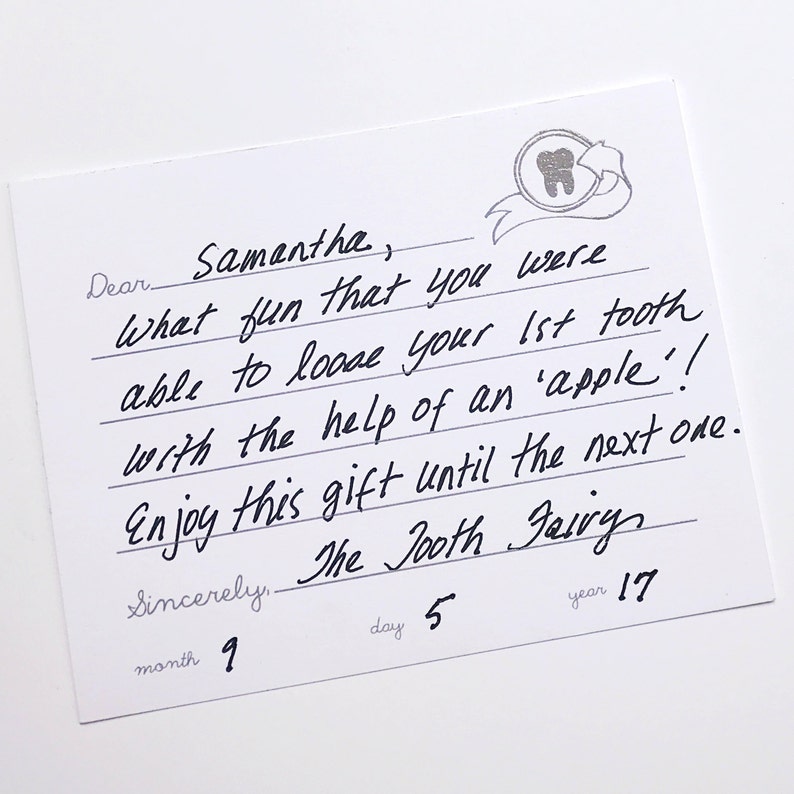 Dear Samantha,
What fun that you were
able to loose your 1st tooth
with the help of an 'apple'!
Enjoy this gift until the next one.
Sincerely, The Tooth Fairy
month 9 day 5 year 17